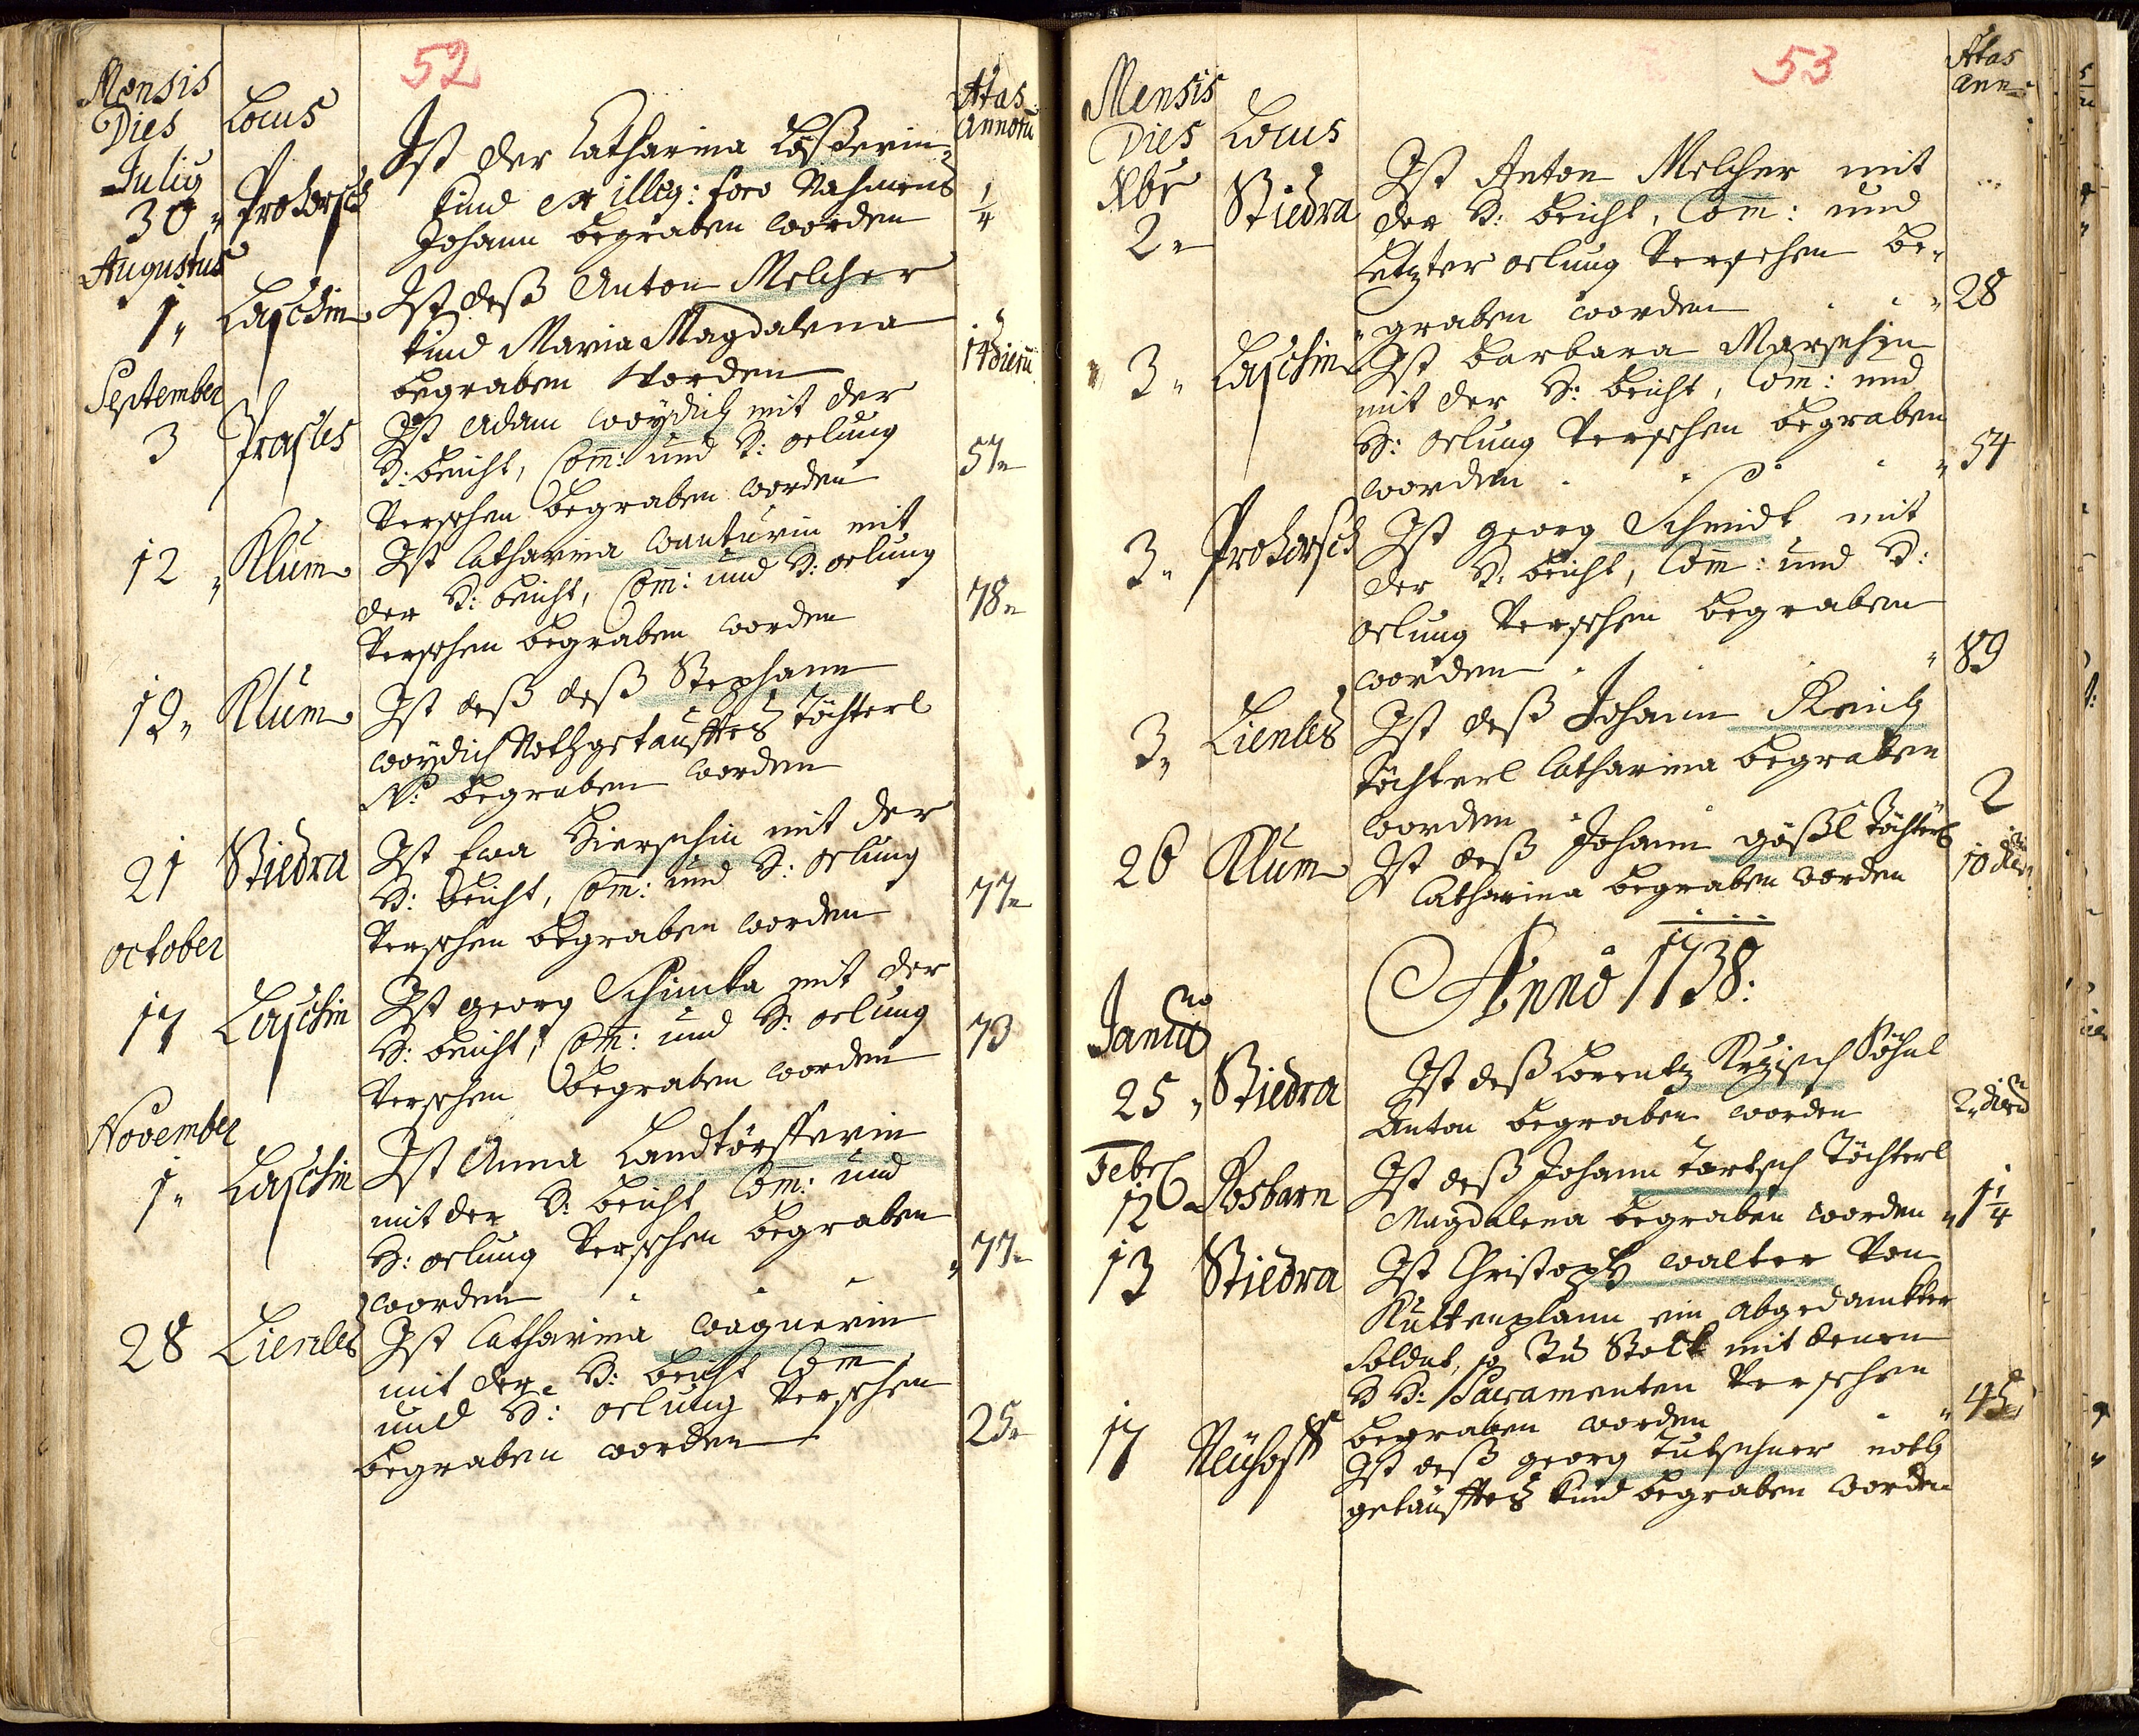 52
Mensis
Dies
Locus
Ætas
Annorũ
Julius
30 Prohorsch
Ist der Catharina Loßerin
Kind ex illeg: toro Nahmens
Johann begraben worden
1/4
Augustus
1 Laschin
Ist deß Anton Melcher
Kind Maria Magdalena
begraben worden
14 dierũ
September
3 Prasles
Ist Adam Woÿdich mit der
H: Beicht, Com̄: und H: Oelung
Versehen begraben worden
57
12 Klum
Ist Catharina
mit
der H: Beicht, Com̄: und H: Oelung
Versehen begraben worden
78
19 Klum
Ist deß deß Stephann
Woÿdich Nothgetaufftes Töchterl
N: begraben worden
21 Stiedra
Ist Eva Hierschin mit der
H: Beicht, Com̄: und H: Oelung
Versehen begraben worden
77
October
17 Laschin
Ist Georg Schimka mit der
H: Beicht, Com̄: und H: Oelung
Versehen begraben worden
73
November
1 Laschin
Ist Anna Landtörfferin
mit der H: Beicht Com̄: und
H: Oelung Versehen begraben
worden
77
28 Lienles
Ist Catharina Wagnerin
mit der H: Beicht Com̄
und H: Oelung Versehen
begraben worden
25
53
Mensis
Dies
Locus
Ætas
Ann:
Xbr
2 Stiedra
Ist Anton Melcher mit
der H: Beicht, Com̄: und
Letzter Oelung Versehen be-
graben worden
28
3 Laschin
Ist Barbara Marschin
mit der H: Beicht, Com̄: und
H: Oelung Versehen begraben
worden
54
3 Prohorsch
Ist Georg Schmidt mit
der H: Beicht, Com̄: und H:
Oelung Versehen begraben
worden
89
3 Lienles
Ist deß Johann
Töchterl Catharina begraben
worden
2
26 Klum
Ist deß Johann Gößl Töchterl
Catharina begraben worden
10 dier:
Anno 1738:
25 Stiedra
Ist deß Lorentz
Söhnl
Anton begraben worden
2 dierũ
Febr
12 Kosbarn
Ist deß Johann Tartsch Töchterl
Magdalena begraben worden
1 1/4
13 Stiedra
Ist Christoph Walter Von
Kuttenplann ein abgedanckter
Soldat, so Zu
mit denen
HH: Sacramenten Versehen
begraben worden
45
17 Neühoff
Ist deß Georg Tutschner noth
getaufftes Kind begraben worden